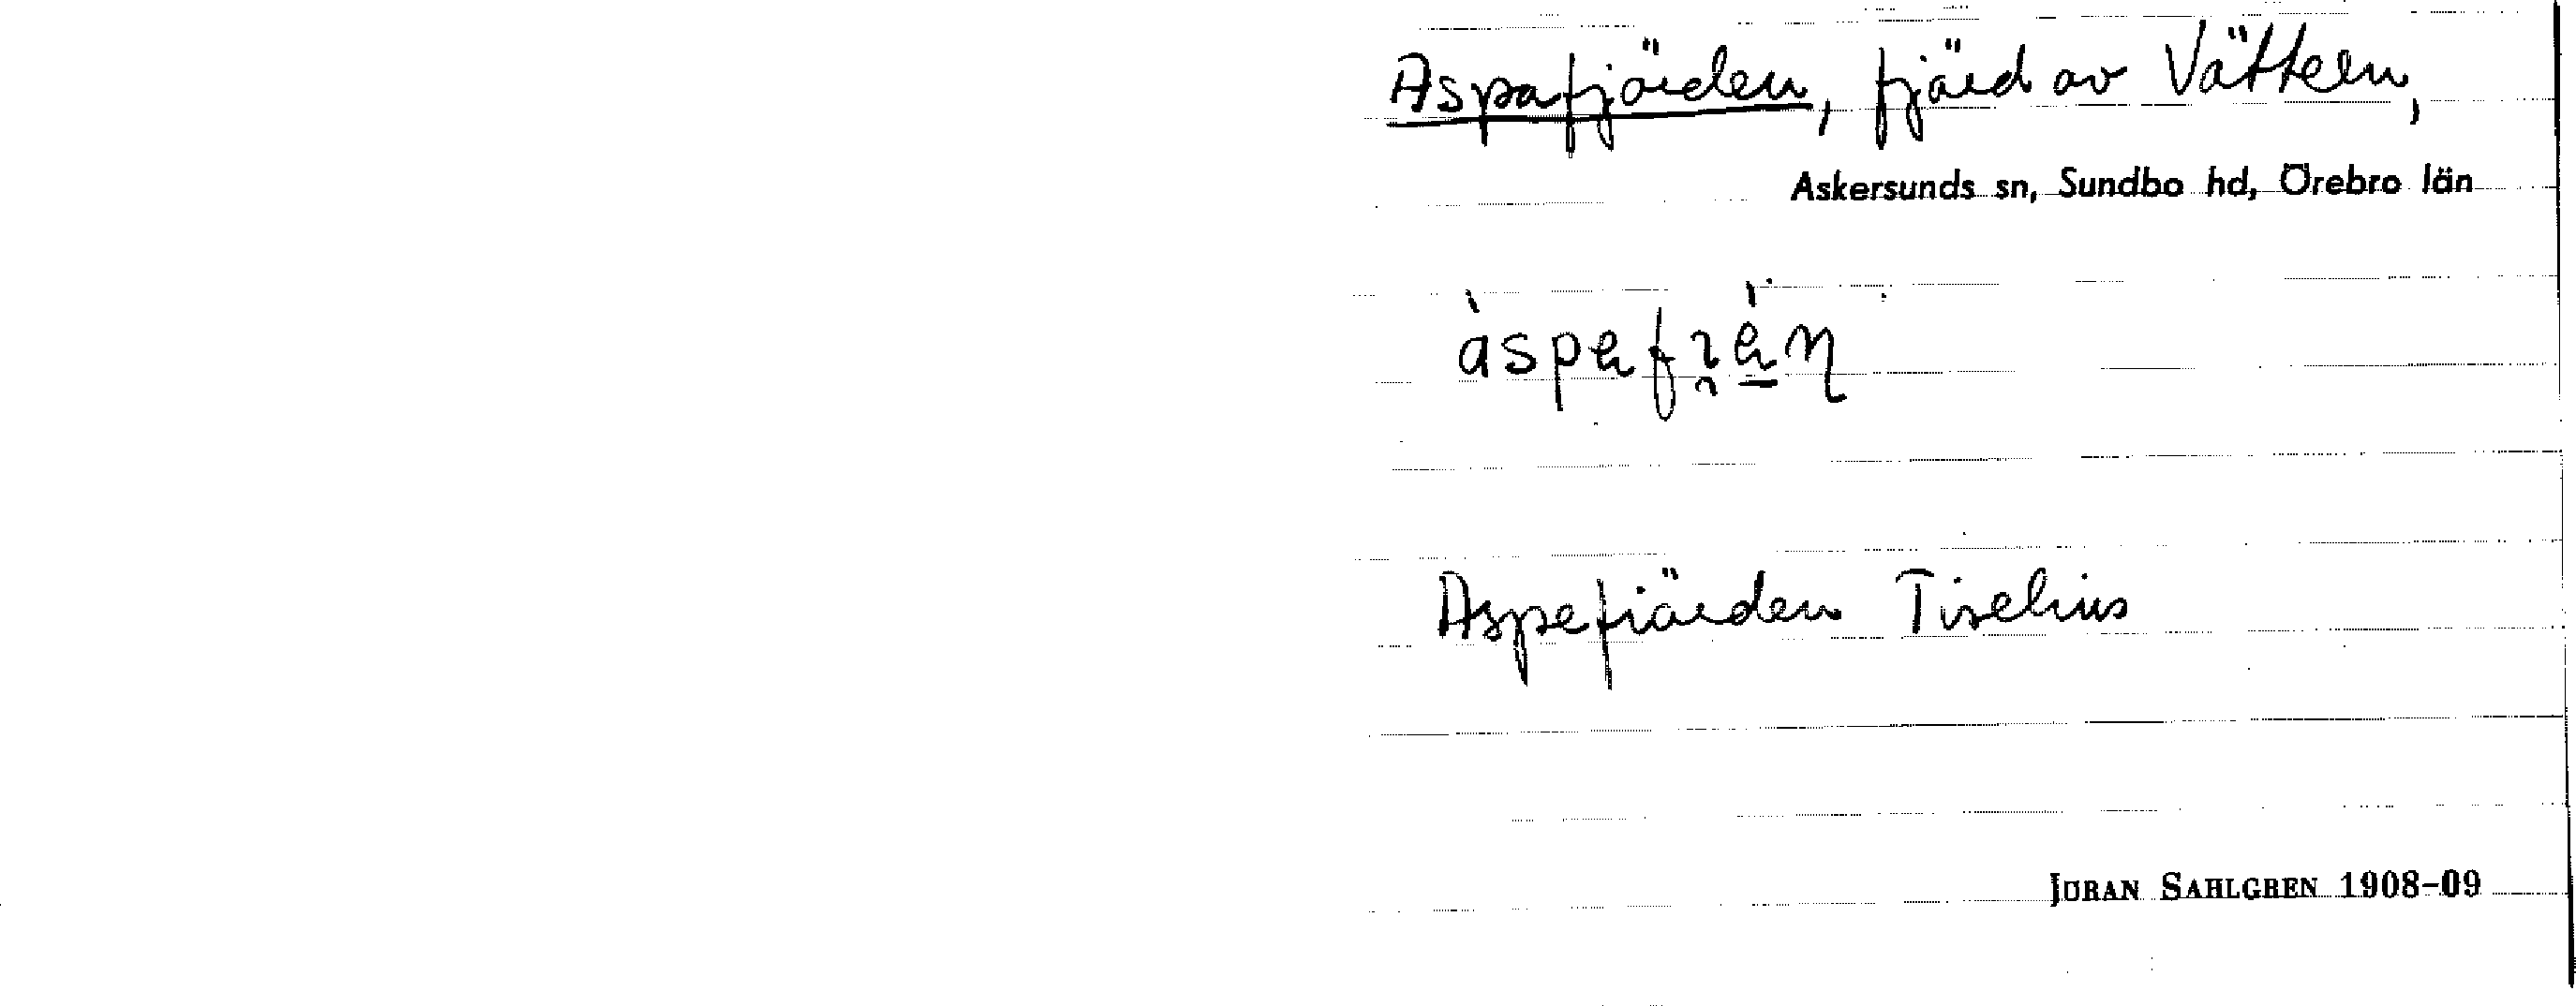 Aspafjärden, fjärd av Vättern,
Askersunds sn, Sundbo hd, Örebro län
Aspefiärden Tiselius
JÖRAN SAHLGREN 1908-09